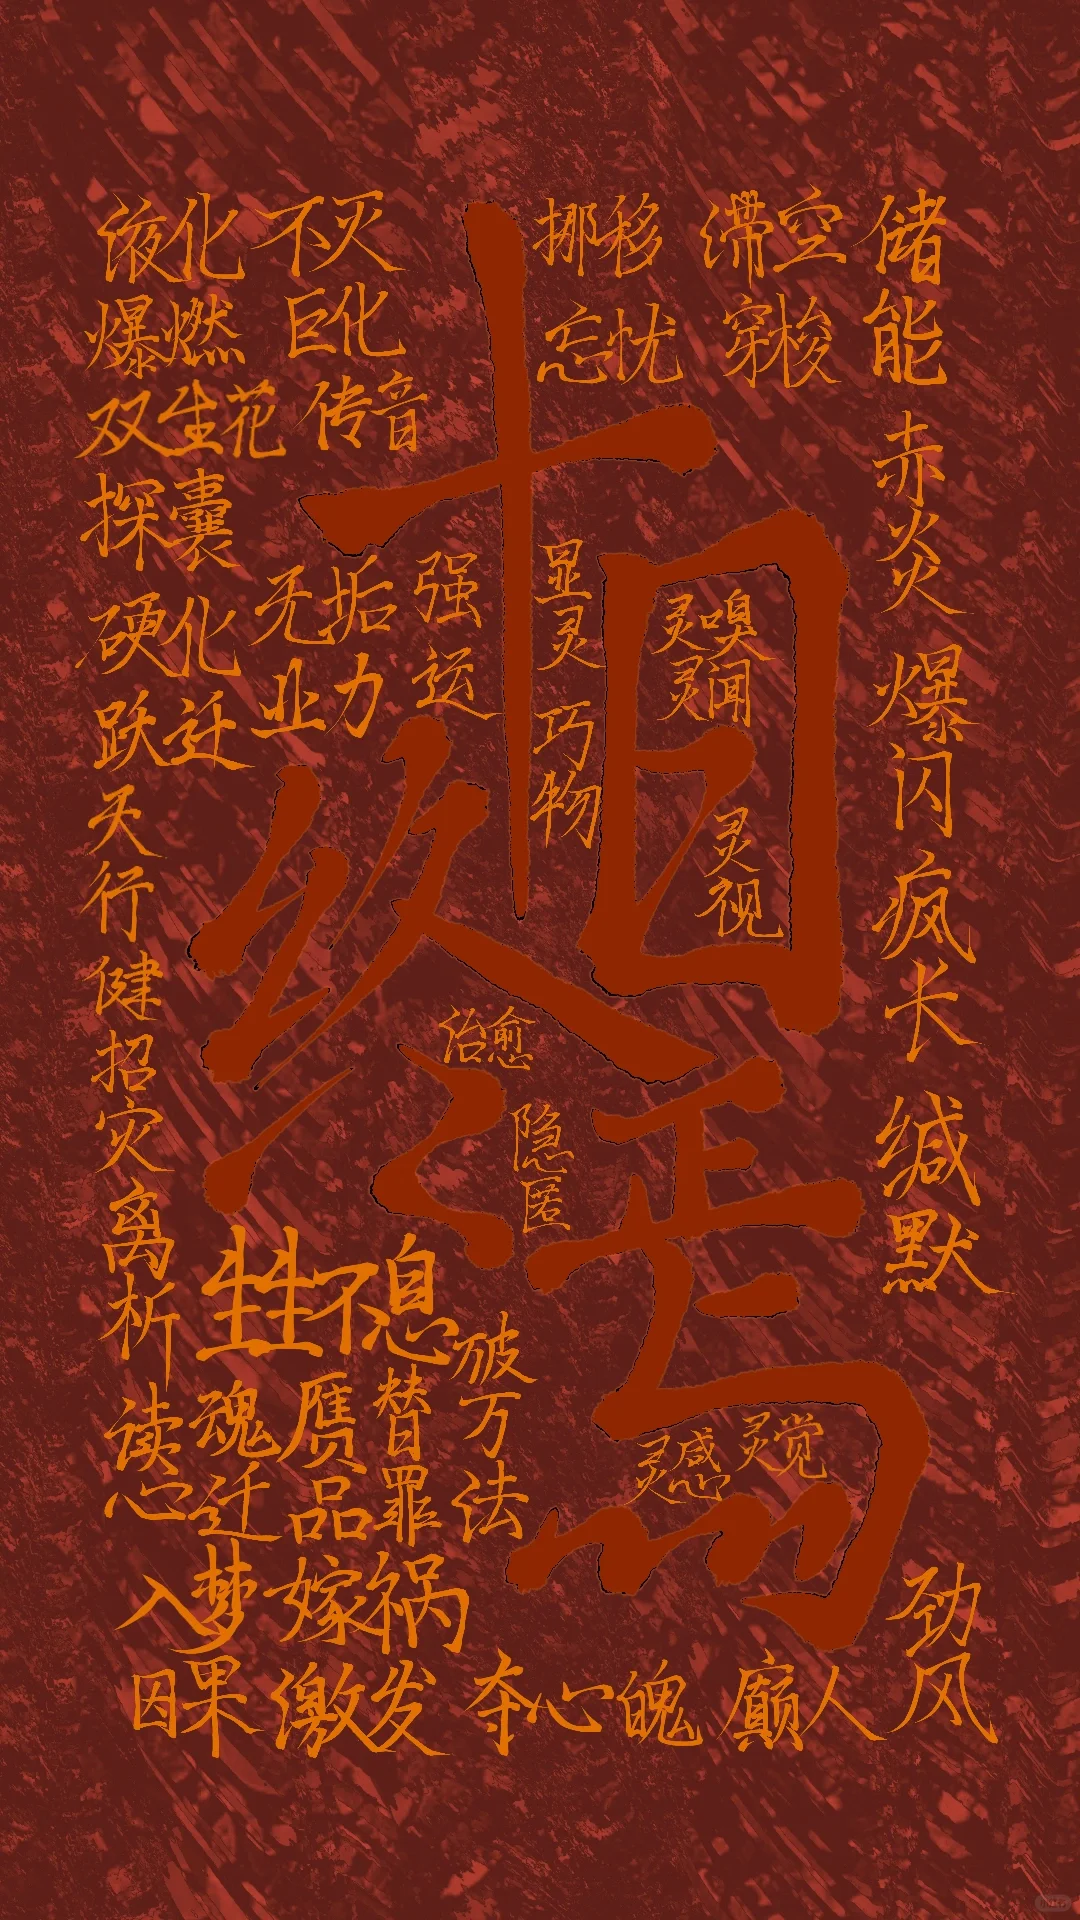 十日终焉
液化
不灭
挪移
滞空
储能
爆燃
巨化
忘忧
穿梭
双生花
传音
赤炎
探囊
无垢
强运
显灵
灵嗅
灵闻
爆闪
硬化
业力
巧物
跃迁
灵视
天行健
疯长
招灾
治愈
隐匿
缄默
离析
生生不息
破万法
读心
魂迁
赝品
替罪
灵感
灵觉
入梦
嫁祸
劲风
因果
激发
夺心魄
癫人